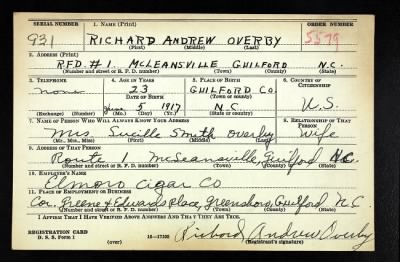 SERIAL NUMBER 1. NAME (Print) ORDER NUMBER
931 RICHARD ANDREW OVERBY 5579
(First) (Middle) (Last)
2. ADDRESS (Print)
R.F.D. #1. McLEANSVILLE GUILFORD N.C.
(Number and street or R. F. D. number) (Town) (County) (State)
3. TELEPHONE 4. AGE IN YEARS 5. PLACE OF BIRTH 6. COUNTRY OF CITIZENSHIP
none 23 GUILFORD CO.
DATE OF BIRTH (Town or county)
June 5 1917 N.C. U.S.
(Exchange) (Number) (Mo.) (Day) (Yr.) (State or country)
7. NAME OF PERSON WHO WILL ALWAYS KNOW YOUR ADDRESS 8. RELATIONSHIP OF THAT PERSON
Mrs Lucille Smith Overby Wife
(Mr., Mrs., Miss) (First) (Middle) (Last)
9. ADDRESS OF THAT PERSON
Route 1 McLeansville, Guilford N.C.
(Number and street or R. F. D. number) (Town) (County) (State)
10. EMPLOYER'S NAME
Elmoro Cigar Co
11. PLACE OF EMPLOYMENT OR BUSINESS
Cor. Greene & Edwards Place, Greensboro, Guilford N.C.
(Number and street or R. F. D. number) (Town) (County) (State)
I AFFIRM THAT I HAVE VERIFIED ABOVE ANSWERS AND THAT THEY ARE TRUE.
REGISTRATION CARD
D. S. S. Form 1 (over) 16—17105 Richard Andrew Overby
(Registrant's signature)